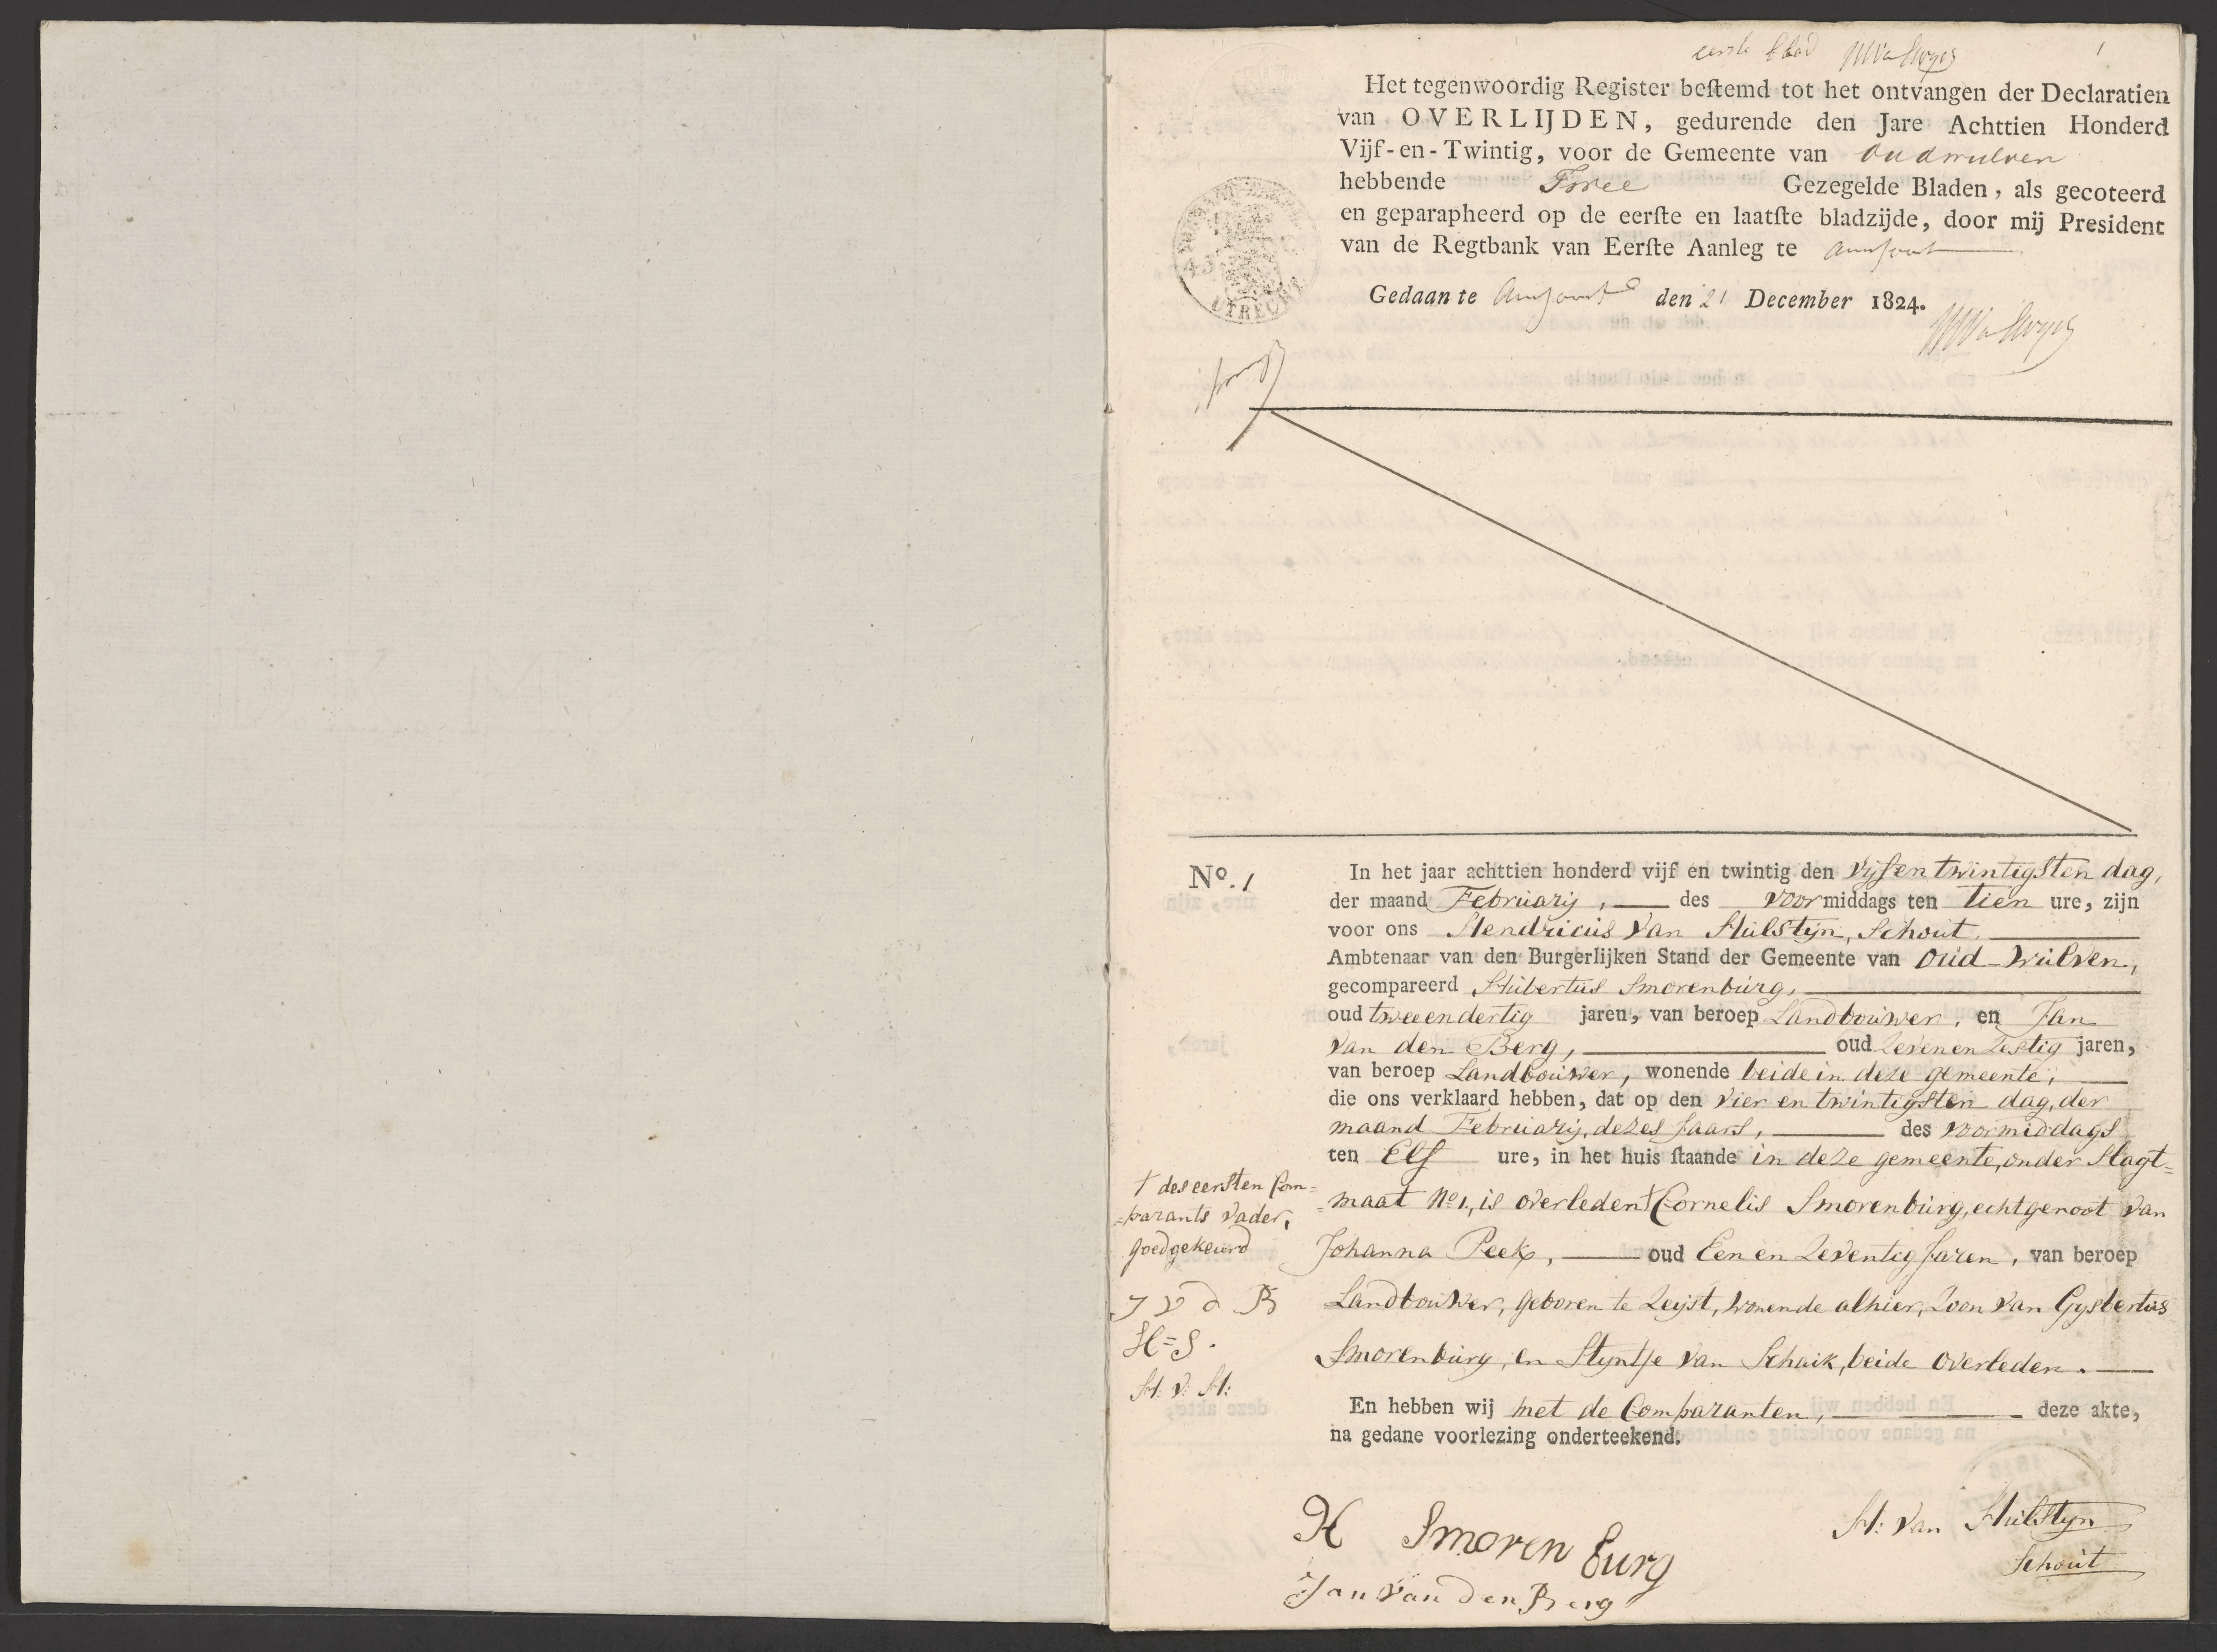 eerste blad
1
Het tegenwoordig Register beſtemd tot het ontvangen der Declaratien
van OVERLIJDEN, gedurende den Jare Achttien Honderd
Vijf-en-Twintig, voor de Gemeente van Oudwulven
hebbende Twee Gezegelde Bladen, als gecoteerd
en geparapheerd op de eerſte en laatſte bladzijde, door mij President
van de Regtbank van Eerſte Aanleg te Amersfoort
Gedaan te Amersfoort den 21 December 1824.
UTRECHT
No. 1
In het jaar achttien honderd vijf en twintig den vijfentwintigsten dag,
der maand Februarij, des voormiddags ten tien ure, zijn
voor ons Hendricus van Hulstijn, Schout.
Ambtenaar van den Burgerlijken Stand der Gemeente van Oud-Wulven,
gecompareerd Hubertus Smorenburg,
oud tweeendertig jaren, van beroep Landbouwer, en Jan
van den Berg, oud Zevenenzestig jaren,
van beroep Landbouwer, wonende beide in deze gemeente,
die ons verklaard hebben, dat op den vier en twintigsten dag, der
maand Februarij, dezes Jaars, des voormiddags
ten Elf ure, in het huis ſtaande in deze gemeente, onder Slagt=
=maat No 1, is overleden † Cornelis Smorenburg, echtgenoot van
Johanna Peek, oud Een en Zeventig Jaren, van beroep
Landbouwer, geboren te Zeijst, wonende alhier, Zoon van Gysbertus
Smorenburg, en Styntje van Schaik, beide overleden.
En hebben wij met de Comparanten, deze akte,
na gedane voorlezing onderteekend.
† des eersten Com=
=parants vader,
goedgekeurd
J v d B
H=S.
H: v: H:
H Smorenburg
Jan van den Berg
H: van Hulstyn
Schout